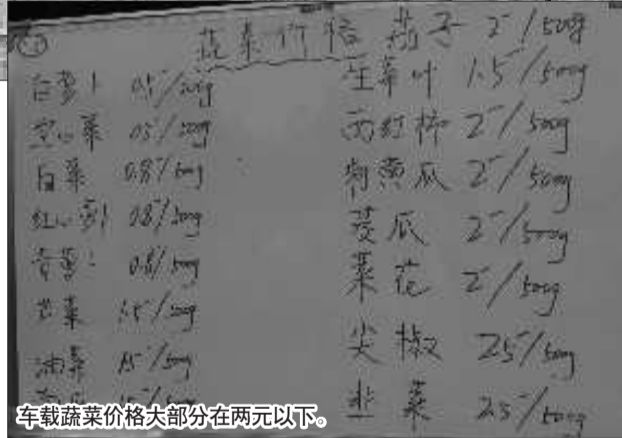 蔬菜价格
白萝卜 0.5/500g
空心菜 0.5/500g
白菜 0.8/500g
红心萝卜 0.8/500g
青萝卜 0.8/500g
芹菜 1.5/500g
油菜 1.5/500g
茄子 2/500g
生菜叶 1.5/500g
西红柿 2/500g
刺黄瓜 2/500g
茭瓜 2/500g
菜花 2/500g
尖椒 25/500g
韭菜 25/500g
车载蔬菜价格大部分在两元以下。